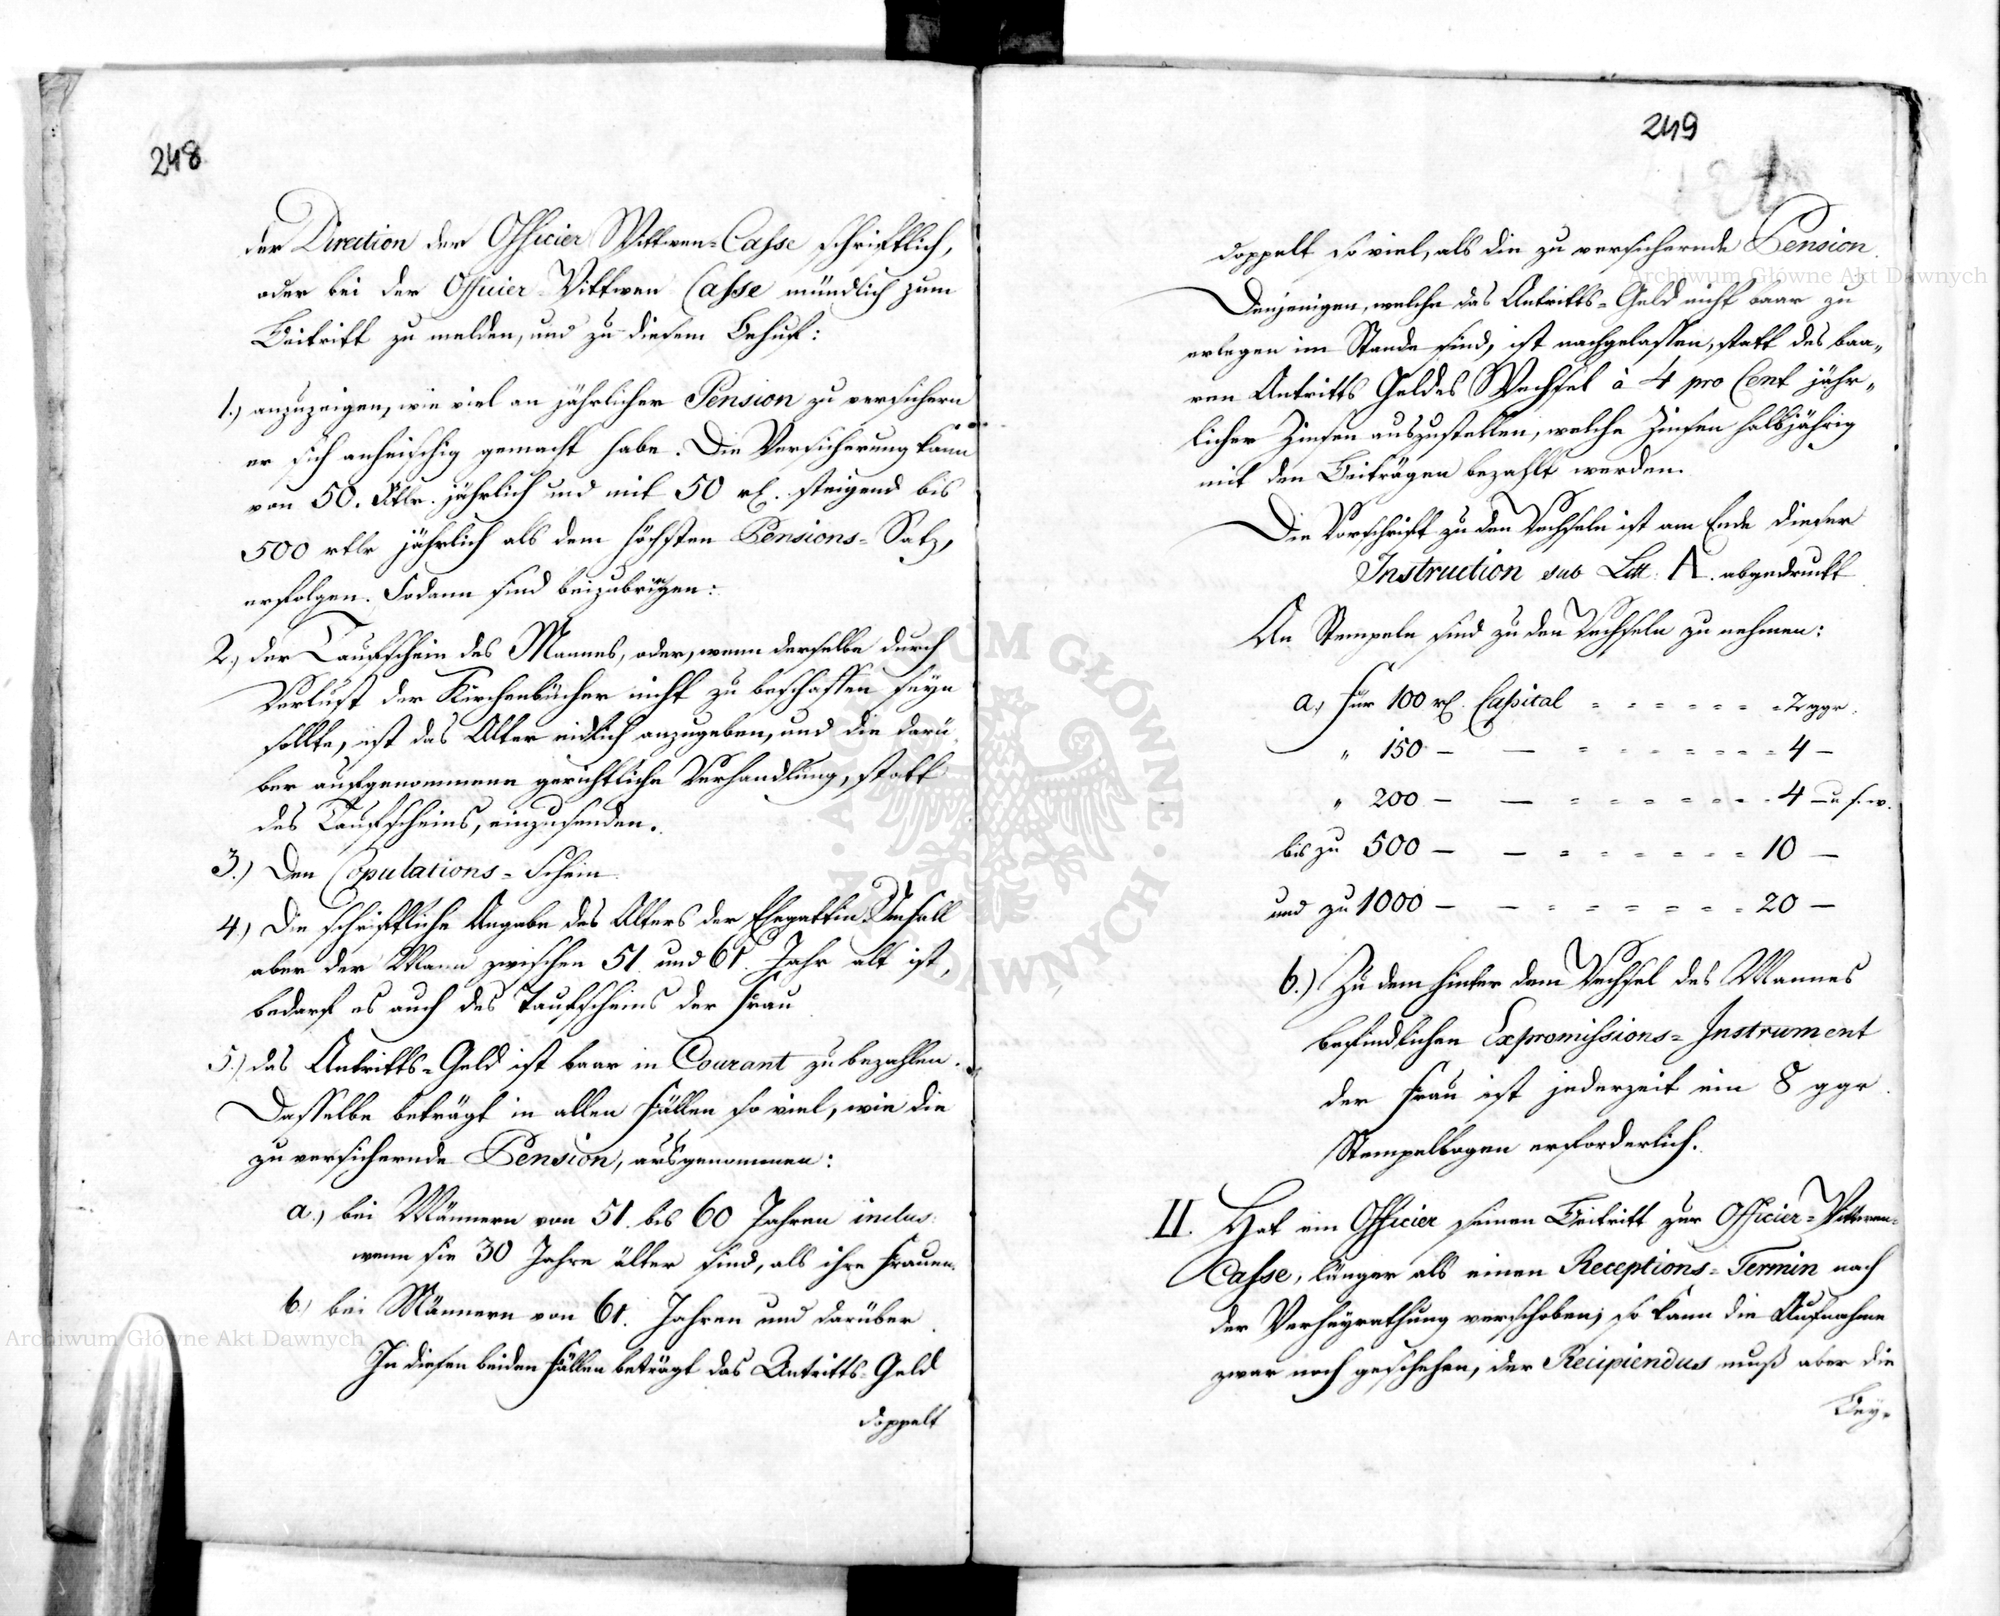 248
der Direction der Officier Wittwen-Casse schriftlich,
oder bei der Officier-Wittwen Casse mündlich zum
Beitritt zu melden, und zu diesem Behuf:
1.) anzuzeigen, wie viel an jährlicher Pension zu versichern
er sich anheischig gemacht habe. Die Versicherung kann
von 50. Rtlr. jährlich und mit 50 rl. steigend bis
500 rtlr jährlich als dem höchsten Pensions-Satz,
erfolgen. Sodann sind beizubringen:
2.) der Taufschein des Mannes, oder, wenn derselbe durch
Verlust der Kirchenbücher nicht zu beschaffen seyn
sollte, ist das Alter eidlich anzugeben, und die darü
ber aufgenommene gerichtliche Verhandlung, statt
des Taufscheins, einzusenden.
3.) Den Copulations-Schein
4.) Die schriftliche Angabe des Alters der Ehegattin. Imfall
aber der Mann zwischen 51. und 61. Jahr alt ist,
bedarf es auch des Taufscheins der Frau
5.) das Antritts-Geld ist baar in Courant zu bezahlen.
Dasselbe beträgt in allen Fällen so viel, wie die
zu versichernde Pension, ausgenommen:
a.) bei Männern von 51. bis 60 Jahren inclus:
wenn sie 30 Jahre älter sind, als ihre Frauen.
b.) bei Männern von 61. Jahren und darüber
In diesen beiden Fällen beträgt das Antritts-Geld
doppelt
249
doppelt so viel, als die zu versichernde Pension.
Denjenigen, welche das Antritts-Geld nicht baar zu
erlegen im Stande sind, ist nachgelassen, statt des baa„
ren Antritts Geldes Wechsel à 4 pro Cent jähr„
licher Zinsen auszustellen, welche Zinsen halbjährig
mit den Beiträgen bezahlt werden.
Die Vorschrift zu den Wechseln ist am Ende dieser
Instruction sub Litt: A. abgedruckt
An Stempeln sind zu den Wechseln zu nehmen:
a.) für 100 rl. Capital - - - - - - - 2 ggr.
" 150 - - - - - - - - - 4 -
" 200 - - - - - - - - - 4 - u. s. w.
bis zu 500 - - - - - - - - - 10 -
und zu 1000 - - - - - - - - - 20 -
b.) Zu dem hinter dem Wechsel des Mannes
befindlichen Expromissions-Instrument
der Frau ist jederzeit ein 8 ggr
Stempelbogen erforderlich.
II. Hat ein Officier seinen Beitritt zur Officier-Wittwen-
Casse, länger als einen Receptions-Termin nach
der Verheyrathung verschoben; so kann die Aufnahme
zwar noch geschehen, der Recipiendus muß aber die
Bey-
Archiwum Główne Akt Dawnych
Archiwum Główne Akt Dawnych
ARCHIWUM GŁÓWNE AKT DAWNYCH